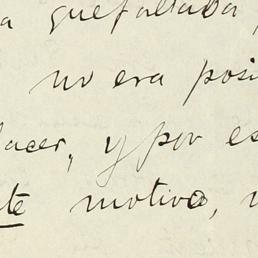 a que faltaba,
no era posi
lacer, y por es
te motivo, n